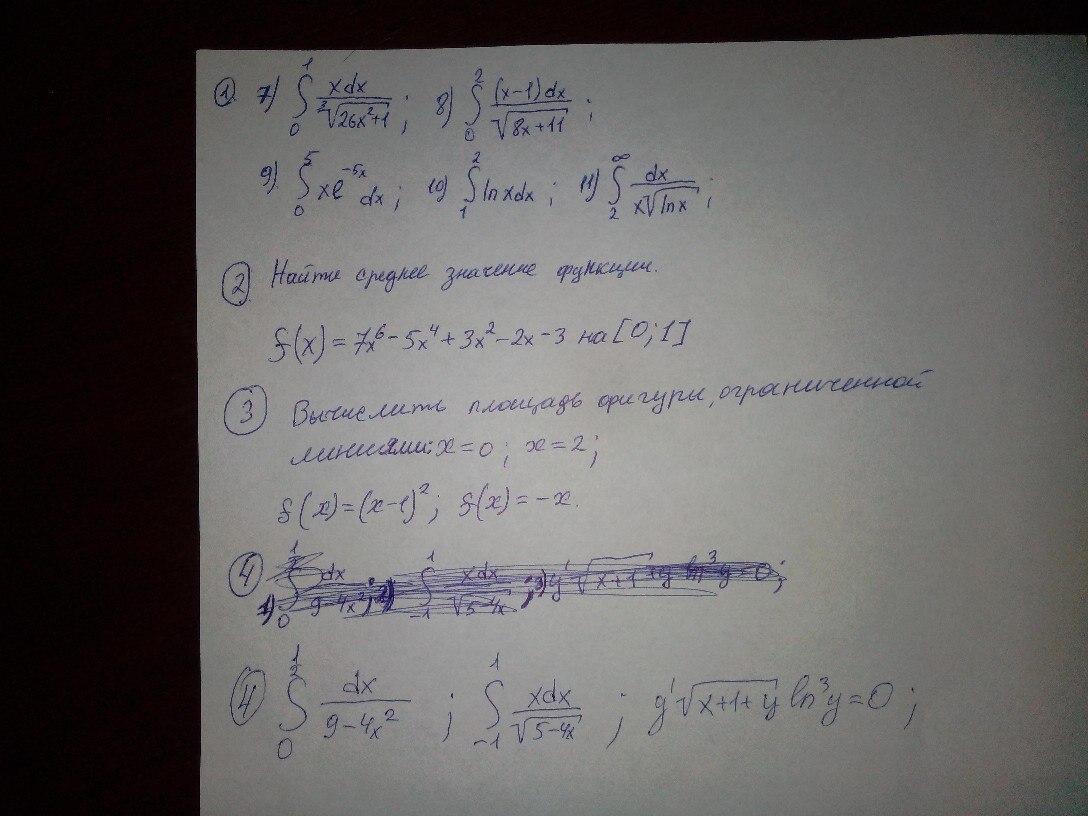 ① 7) ∫₀¹ xdx / ³√(26x²+1) ; 8) ∫₀² (x-1)dx / √(8x+11) ;
9) ∫₀⁵ xe⁻⁵ˣ dx ; 10) ∫₁² ln xdx ; 11) ∫₂^∞ dx / x√(ln x) ;
② Найти среднее значение функции.
f(x) = 7x⁶ - 5x⁴ + 3x² - 2x - 3 на [0; 1]
③ Вычислить площадь фигуры, ограниченной
линиями: x = 0 ; x = 2 ;
f(x) = (x-1)² ; f(x) = -x.
④ 1) ∫₀^(1/2) dx / 9-4x² ; 2) ∫₋₁¹ xdx / √(5-4x) ; 3) y' √(x+1) + y ln³y = 0 ;
④ ∫₀^(1/2) dx / 9-4x² ; ∫₋₁¹ xdx / √(5-4x) ; y' √(x+1+y) ln³y = 0 ;